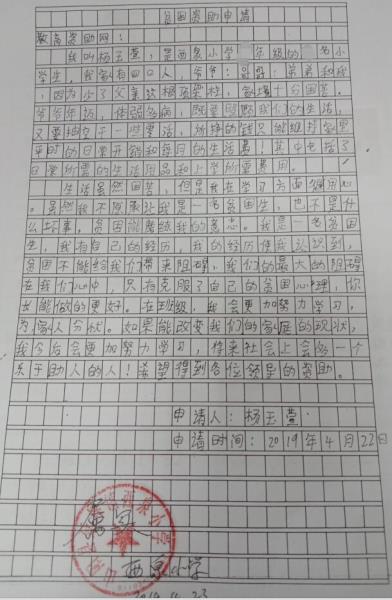 贫困资助申请
敬爱资助网:
我叫杨玉萱,是西泉小学 年级的一名小
学生,我家有四口人,爷爷、奶奶、弟弟和我
,因为少了父亲这根顶梁柱,家境十分困苦。
爷爷年迈,体弱多病,既要照顾我们的生活,
又要 干一些零活,所挣的钱只能维持家里
平时的日常开销和每日的生活费!其中包括了
日常所需的生活用品和上学所需费用。
生活虽然困苦,但是我在学习方面 用心
。虽然我不 承认我是一名贫困生,也不是什
么坏事。贫困能磨练我的意志。我是一名贫困
生,我有自己的经历,我的经历使我认识到,
贫困不能给我们带来阻碍,我们的最大的阻碍
在我们心中,只有克服了自己的贫困心理,你
才能做的更好。在班级,我会更加努力学习,
为家人分忧。如果能改变我们的家庭的现状,
我今后会更加努力学习,将来社会上会多一个
乐于助人的人!希望得到各位领导的资助。
申请人:杨玉萱
申请时间:2019年4月22日
西泉小学
2019.4.23